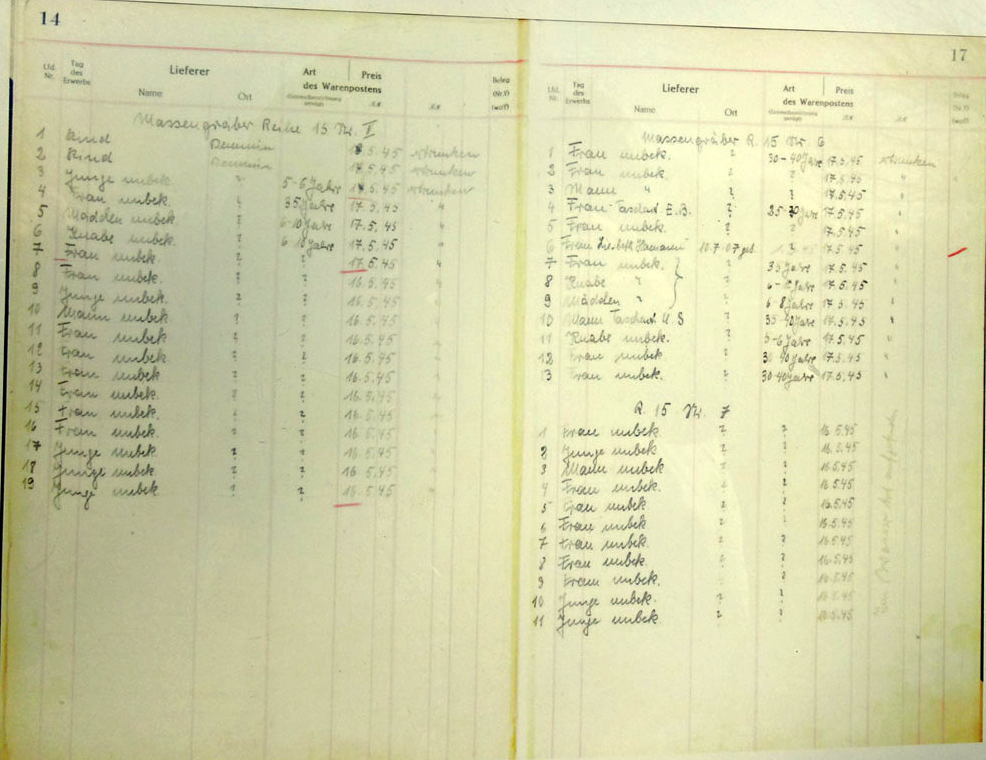 14
Lfd. Nr. Tag des Erwerbs Lieferer Name Ort Art des Warenpostens Preis Beleg
Massengräber Reihe 15 Nr.
1 Kind Demmin 5.45 ertrunken
2 Kind Demmin 17.5.45 ertrunken
3 Junge unbek. ? 5-6 Jahre 5.45 ertrunken
4 Frau unbek. ? 35 Jahre 17.5.45 "
5 Mädchen unbek. ? 6-10 Jahre 17.5.45
6 Knabe unbek. ? Jahre 17.5.45 "
7 Frau unbek. ? ? 17.5.45 "
8 Frau unbek. ? ? 16.5.45 "
9 Junge unbek. ? ? 16.5.45 "
10 Mann unbek. ? ? 16.5.45 "
11 Frau unbek. ? ? 16.5.45 "
12 Frau unbek. ? ? 16.5.45 "
13 Frau unbek. ? ? 16.5.45 "
14 Frau unbek. ? ? 16.5.45 "
15 Frau unbek. ? ? 16.5.45 "
16 Frau unbek. ? ? 16.5.45 "
17 Junge unbek. ? ? 16.5.45 "
18 Junge unbek. ? ? 16.5.45 "
19 Junge unbek. ? ? 16.5.45 "
17
Lfd. Nr. Tag des Erwerbs Lieferer Name Ort Art des Warenpostens Preis
Massengräber R. 15 Nr 6
1 Frau unbek. ? 30-40 Jahre 17.5.45 ertrunken
2 Frau unbek. ? ? 17.5.45 "
3 Mann " ? ? 17.5.45 "
4 Frau Taschent. E.B. ? Jahre 17.5.45 "
5 Frau unbek. ? ? 17.5.45 "
6 Frau 10.7.07 geb. 17.5.45 "
7 Frau unbek. ? 35 Jahre 17.5.45 "
8 Knabe " ? Jahre 17.5.45 "
9 Mädchen " ? 6-8 Jahre 17.5.45 "
10 Mann Taschent. U.S ? 35-40 Jahre 17.5.45 "
11 Knabe unbek. ? 5-6 Jahre 17.5.45 "
12 Frau unbek ? 30-40 Jahre 17.5.45 "
13 Frau unbek. ? 30-40 Jahre 17.5.45 "
R. 15 Nr. 7
1 Frau unbek. ? ? 16.5.45
2 Junge unbek. ? ? 16.5.45
3 Mann unbek ? ? 16.5.45
4 Frau unbek. ? ? 16.5.45
5 Frau unbek ? ? 16.5.45
6 Frau unbek ? ? 16.5.45
7 Frau unbek. ? ? 16.5.45
8 Frau unbek. ? ? 16.5.45
9 Frau unbek. ? ? 16.5.45
10 Junge unbek. ? ? 16.5.45
11 Junge unbek. ? ? 16.5.45